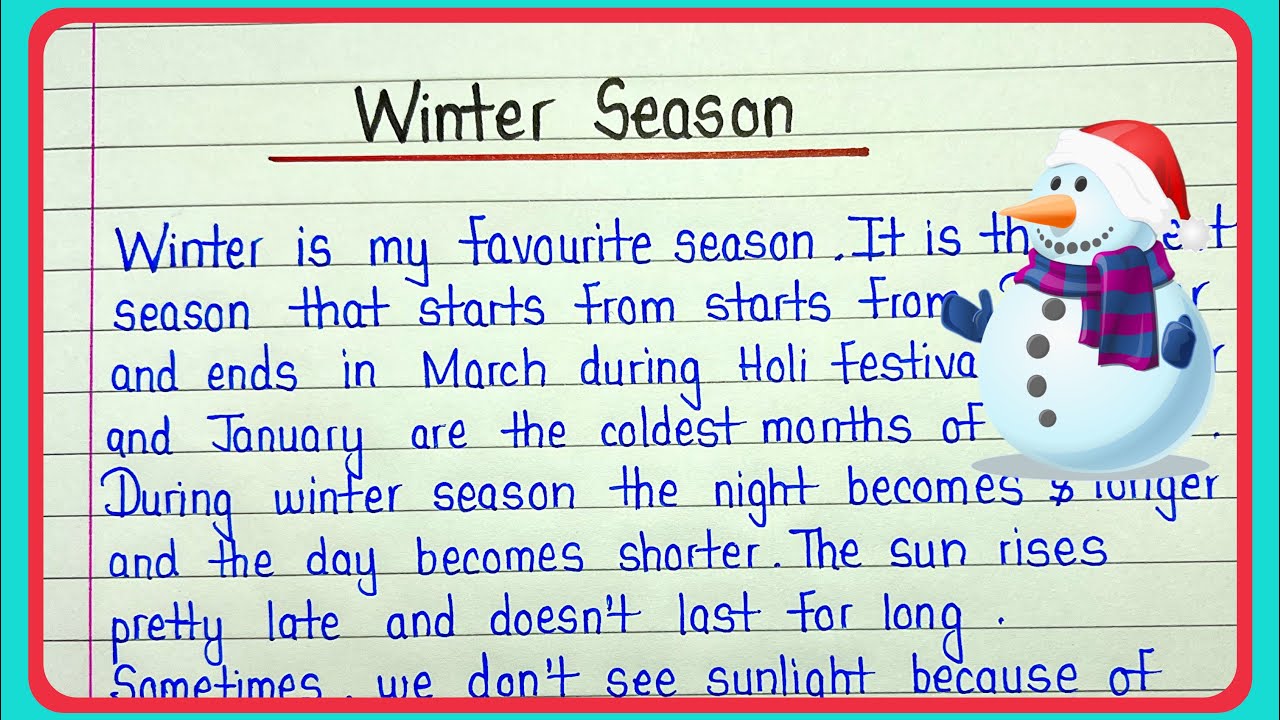 Winter Season
Winter is my favourite season. It is
season that starts from starts from
and ends in March during Holi
and January are the coldest months of
During winter season the night becomes longer
and the day becomes shorter. The sun rises
pretty late and doesn't last for long.
Sometimes, we don't see sunlight because of